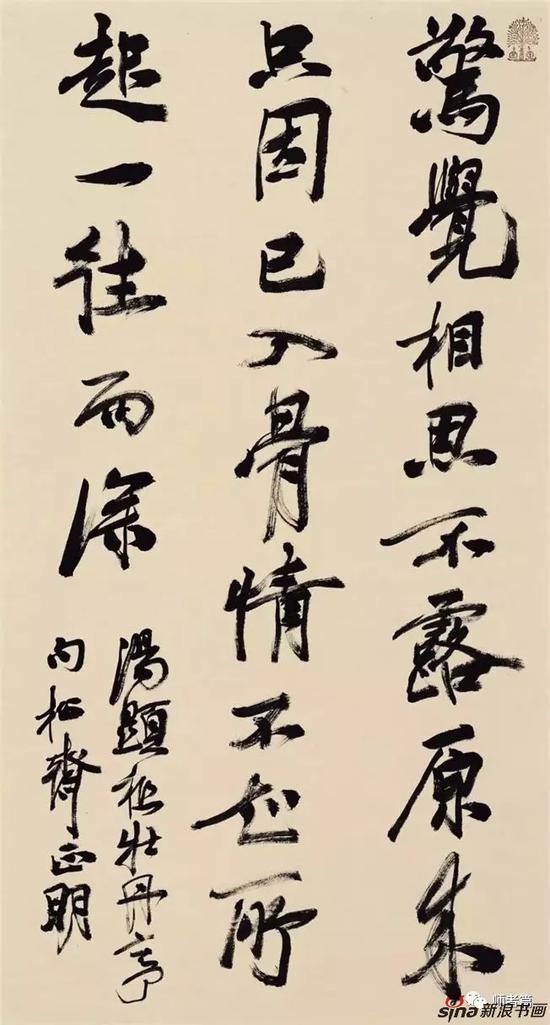 驚覺相思不露原来
只因已入骨情不知所
起一往而深
湯顯祖牡丹亭
松齋正明
sina新浪书画